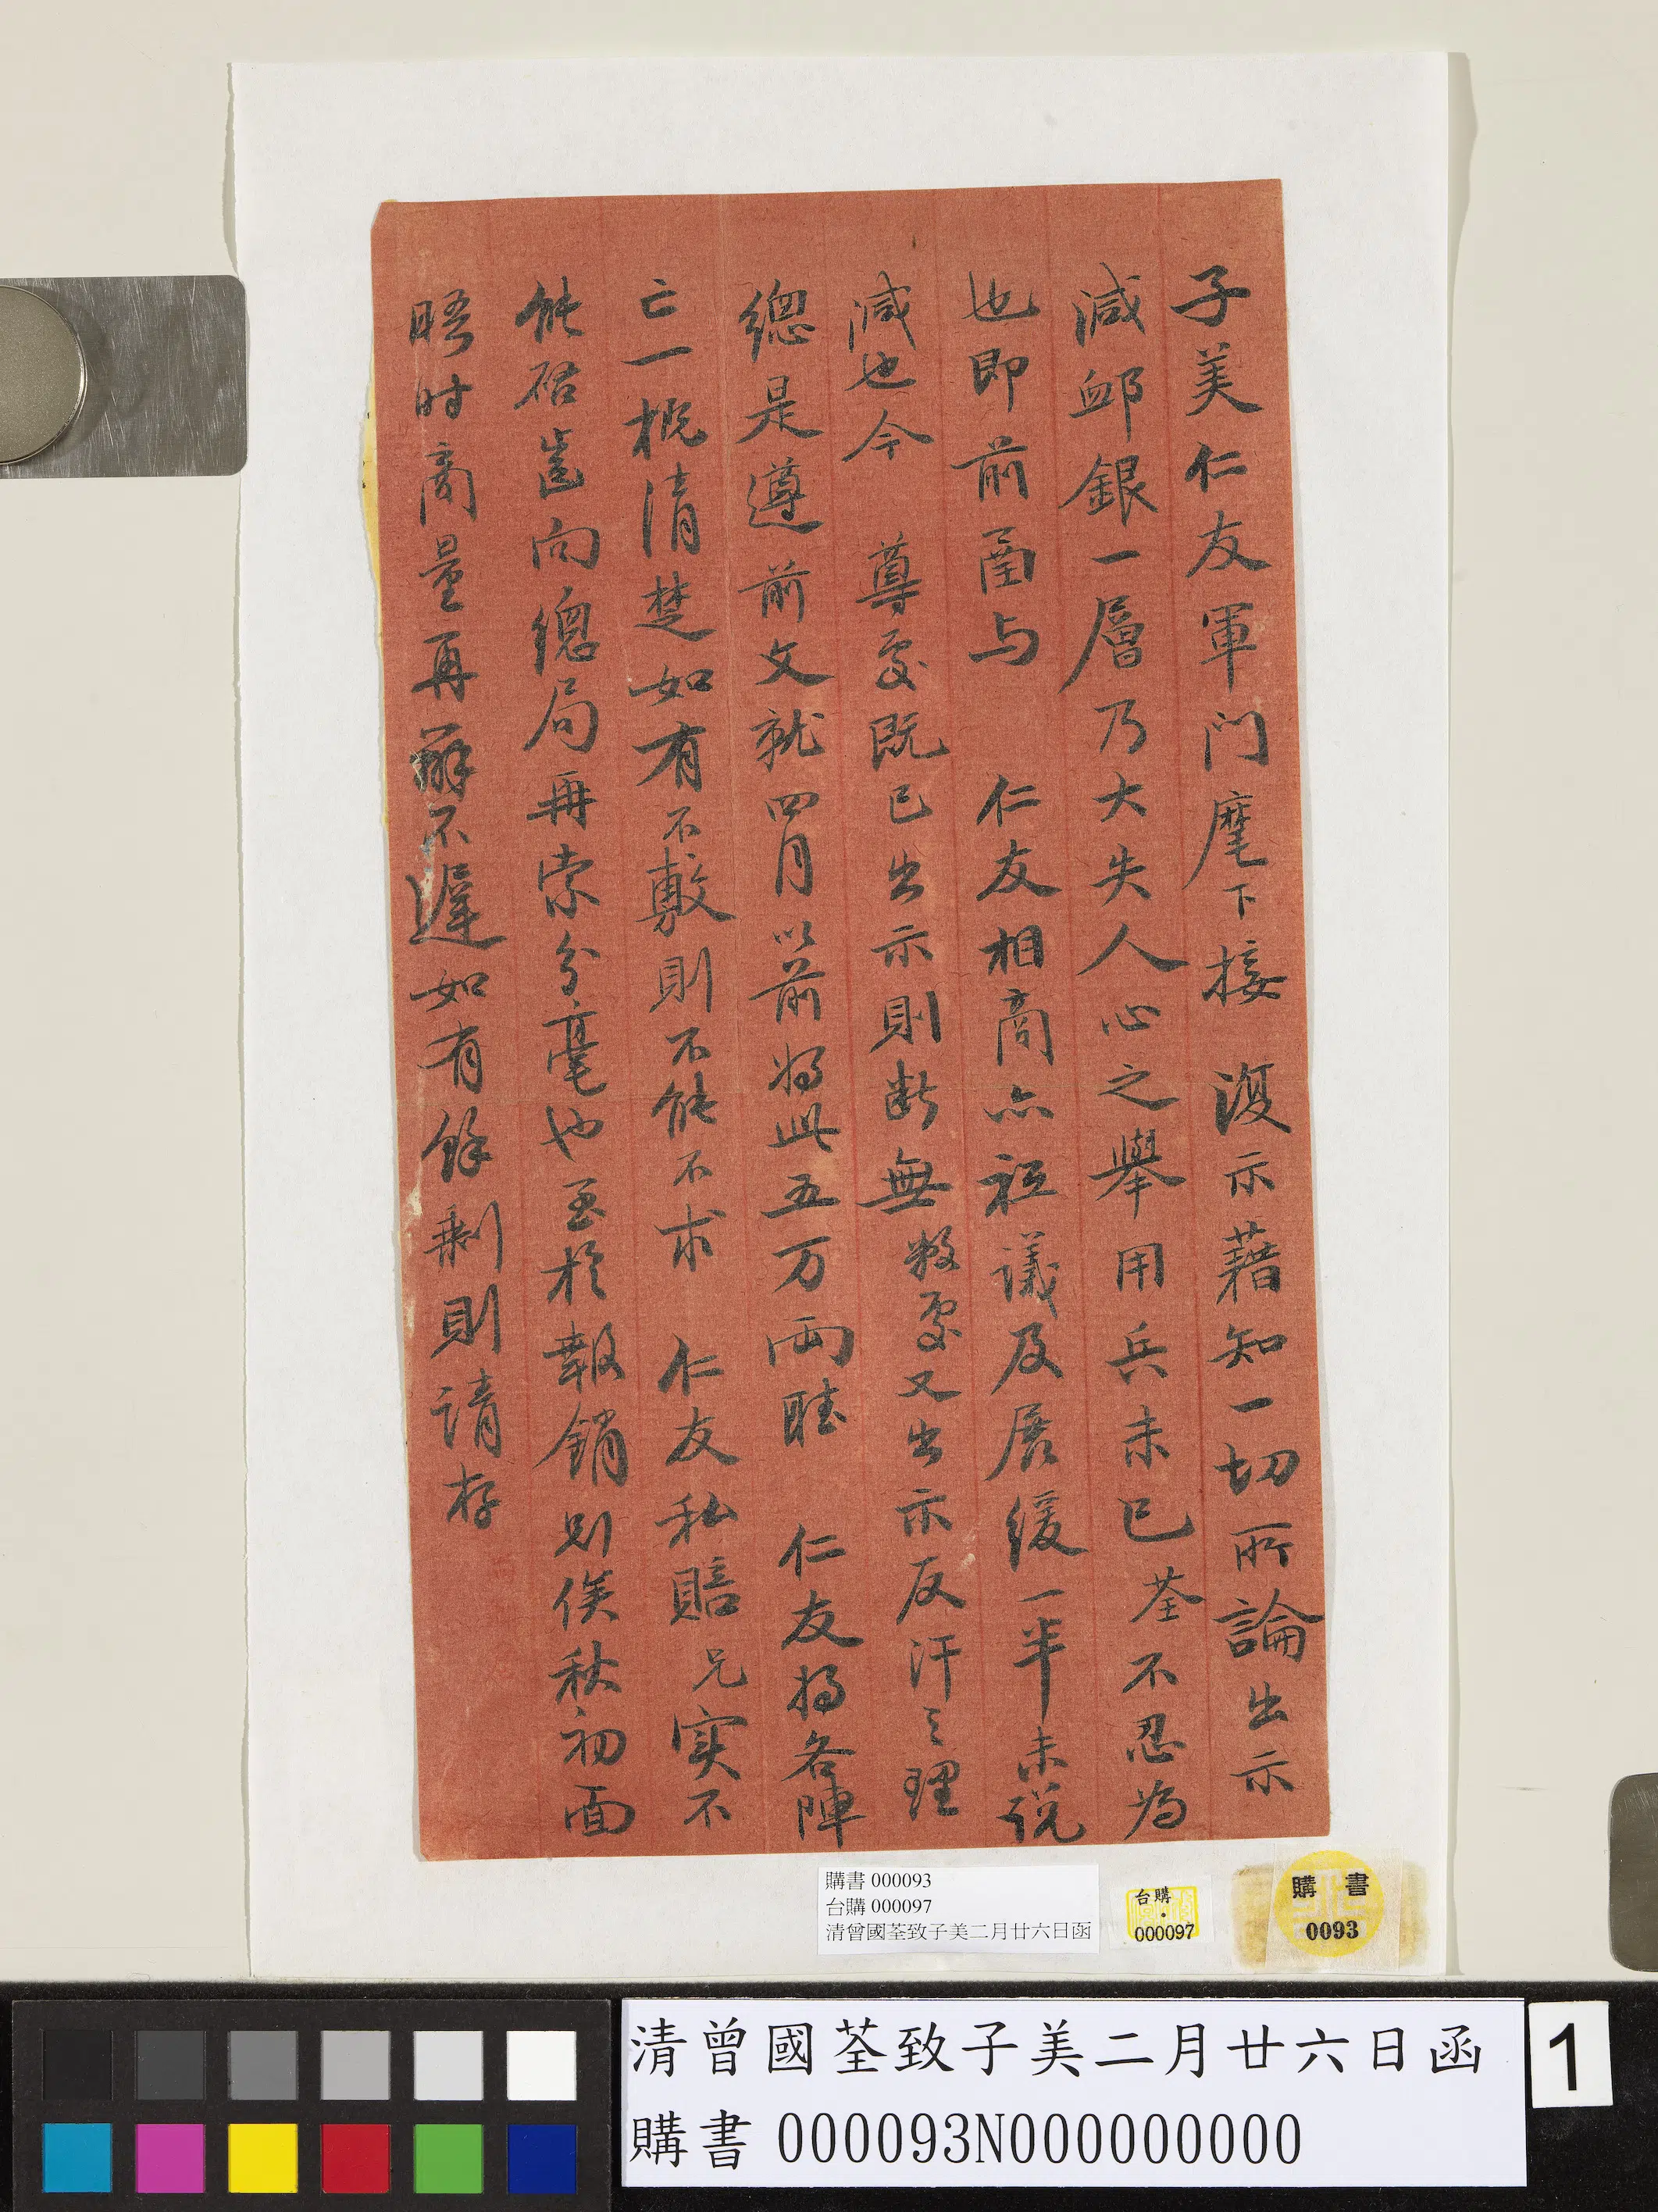 子美仁友軍门麾下接 復示藉知一切所論出示
減卹銀一層乃大失人心之舉用兵未已荃不忍為
也即前函与 仁友相商亦祗議及居緩一半未説
減也今 尊處既已出示則断無数處又出示反汗之理
總是遵前文就四月以前将此五万両聴 仁友将各陣
亡一概清楚如有不敷則不能不求 仁友私賠兄実不
能啓齒向總局再索分毫也至於報銷則俟秋初面
晤时商量再辦不遲如有餘剩則請存
購書 000093
台購 000097
清曾國荃致子美二月廿六日函
台購
000097
購書
0093
清曾國荃致子美二月廿六日函
購書 000093N000000000
1